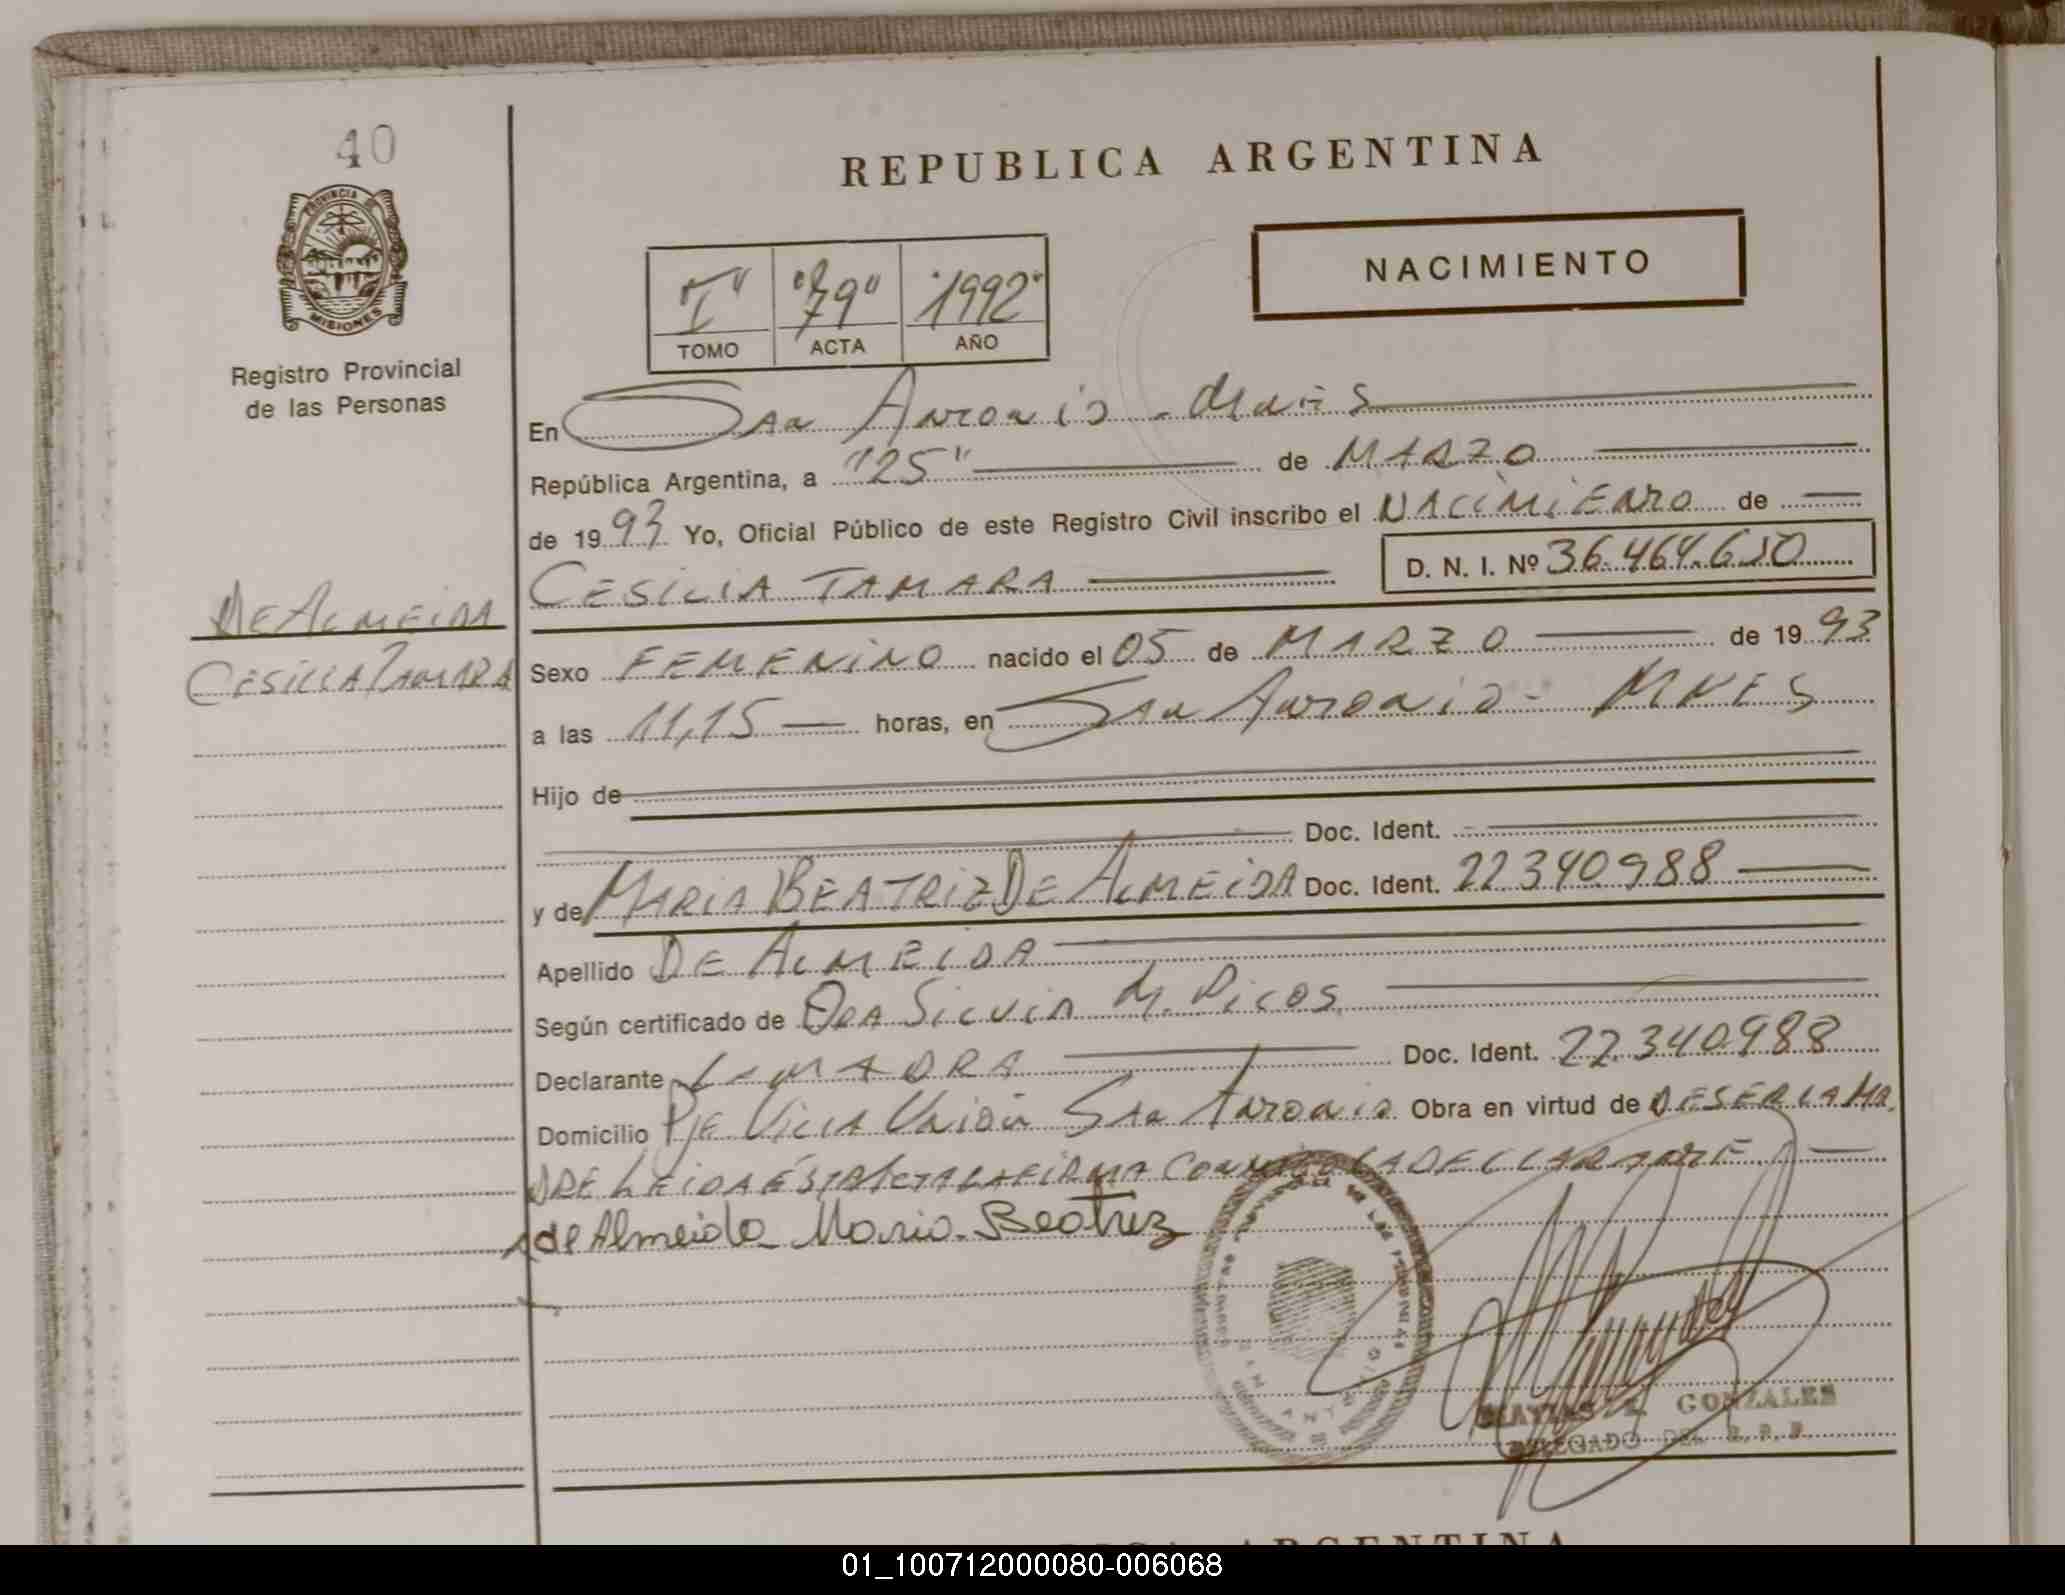 40
REPUBLICA ARGENTINA
PROVINCIA DE
MISIONES
Registro Provincial
de las Personas
NACIMIENTO
"I" "79" "1992"
TOMO ACTA AÑO
En San Antonio - Mnes
República Argentina, a "25" de MARZO
de 1993 Yo, Oficial Público de este Registro Civil inscribo el NACIMIENTO de
CESILIA TAMARA D. N. I. Nº 36.464.610
DE ALMEIDA
CESILIA TAMARA
Sexo FEMENINO nacido el 05 de MARZO de 1993
a las 11,15 horas, en San Antonio - MNES
Hijo de
Doc. Ident.
y de MARIA BEATRIZ DE ALMEIDA Doc. Ident. 22340988
Apellido DE ALMEIDA
Según certificado de DRA SILVIA M. Picos
Declarante LA MADRA Doc. Ident. 22340988
Domicilio Pje VILLA UNIÓN San Antonio Obra en virtud de DE SER LA MA
DRE LEIDA ÉSTA ACTA LA FIRMA CONMIGO LA DECLARANTE
de Almeida Maria Beatriz
GONZALES
DELEGADO DEL R. P. P.
ARGENTINA
01_100712000080-006068